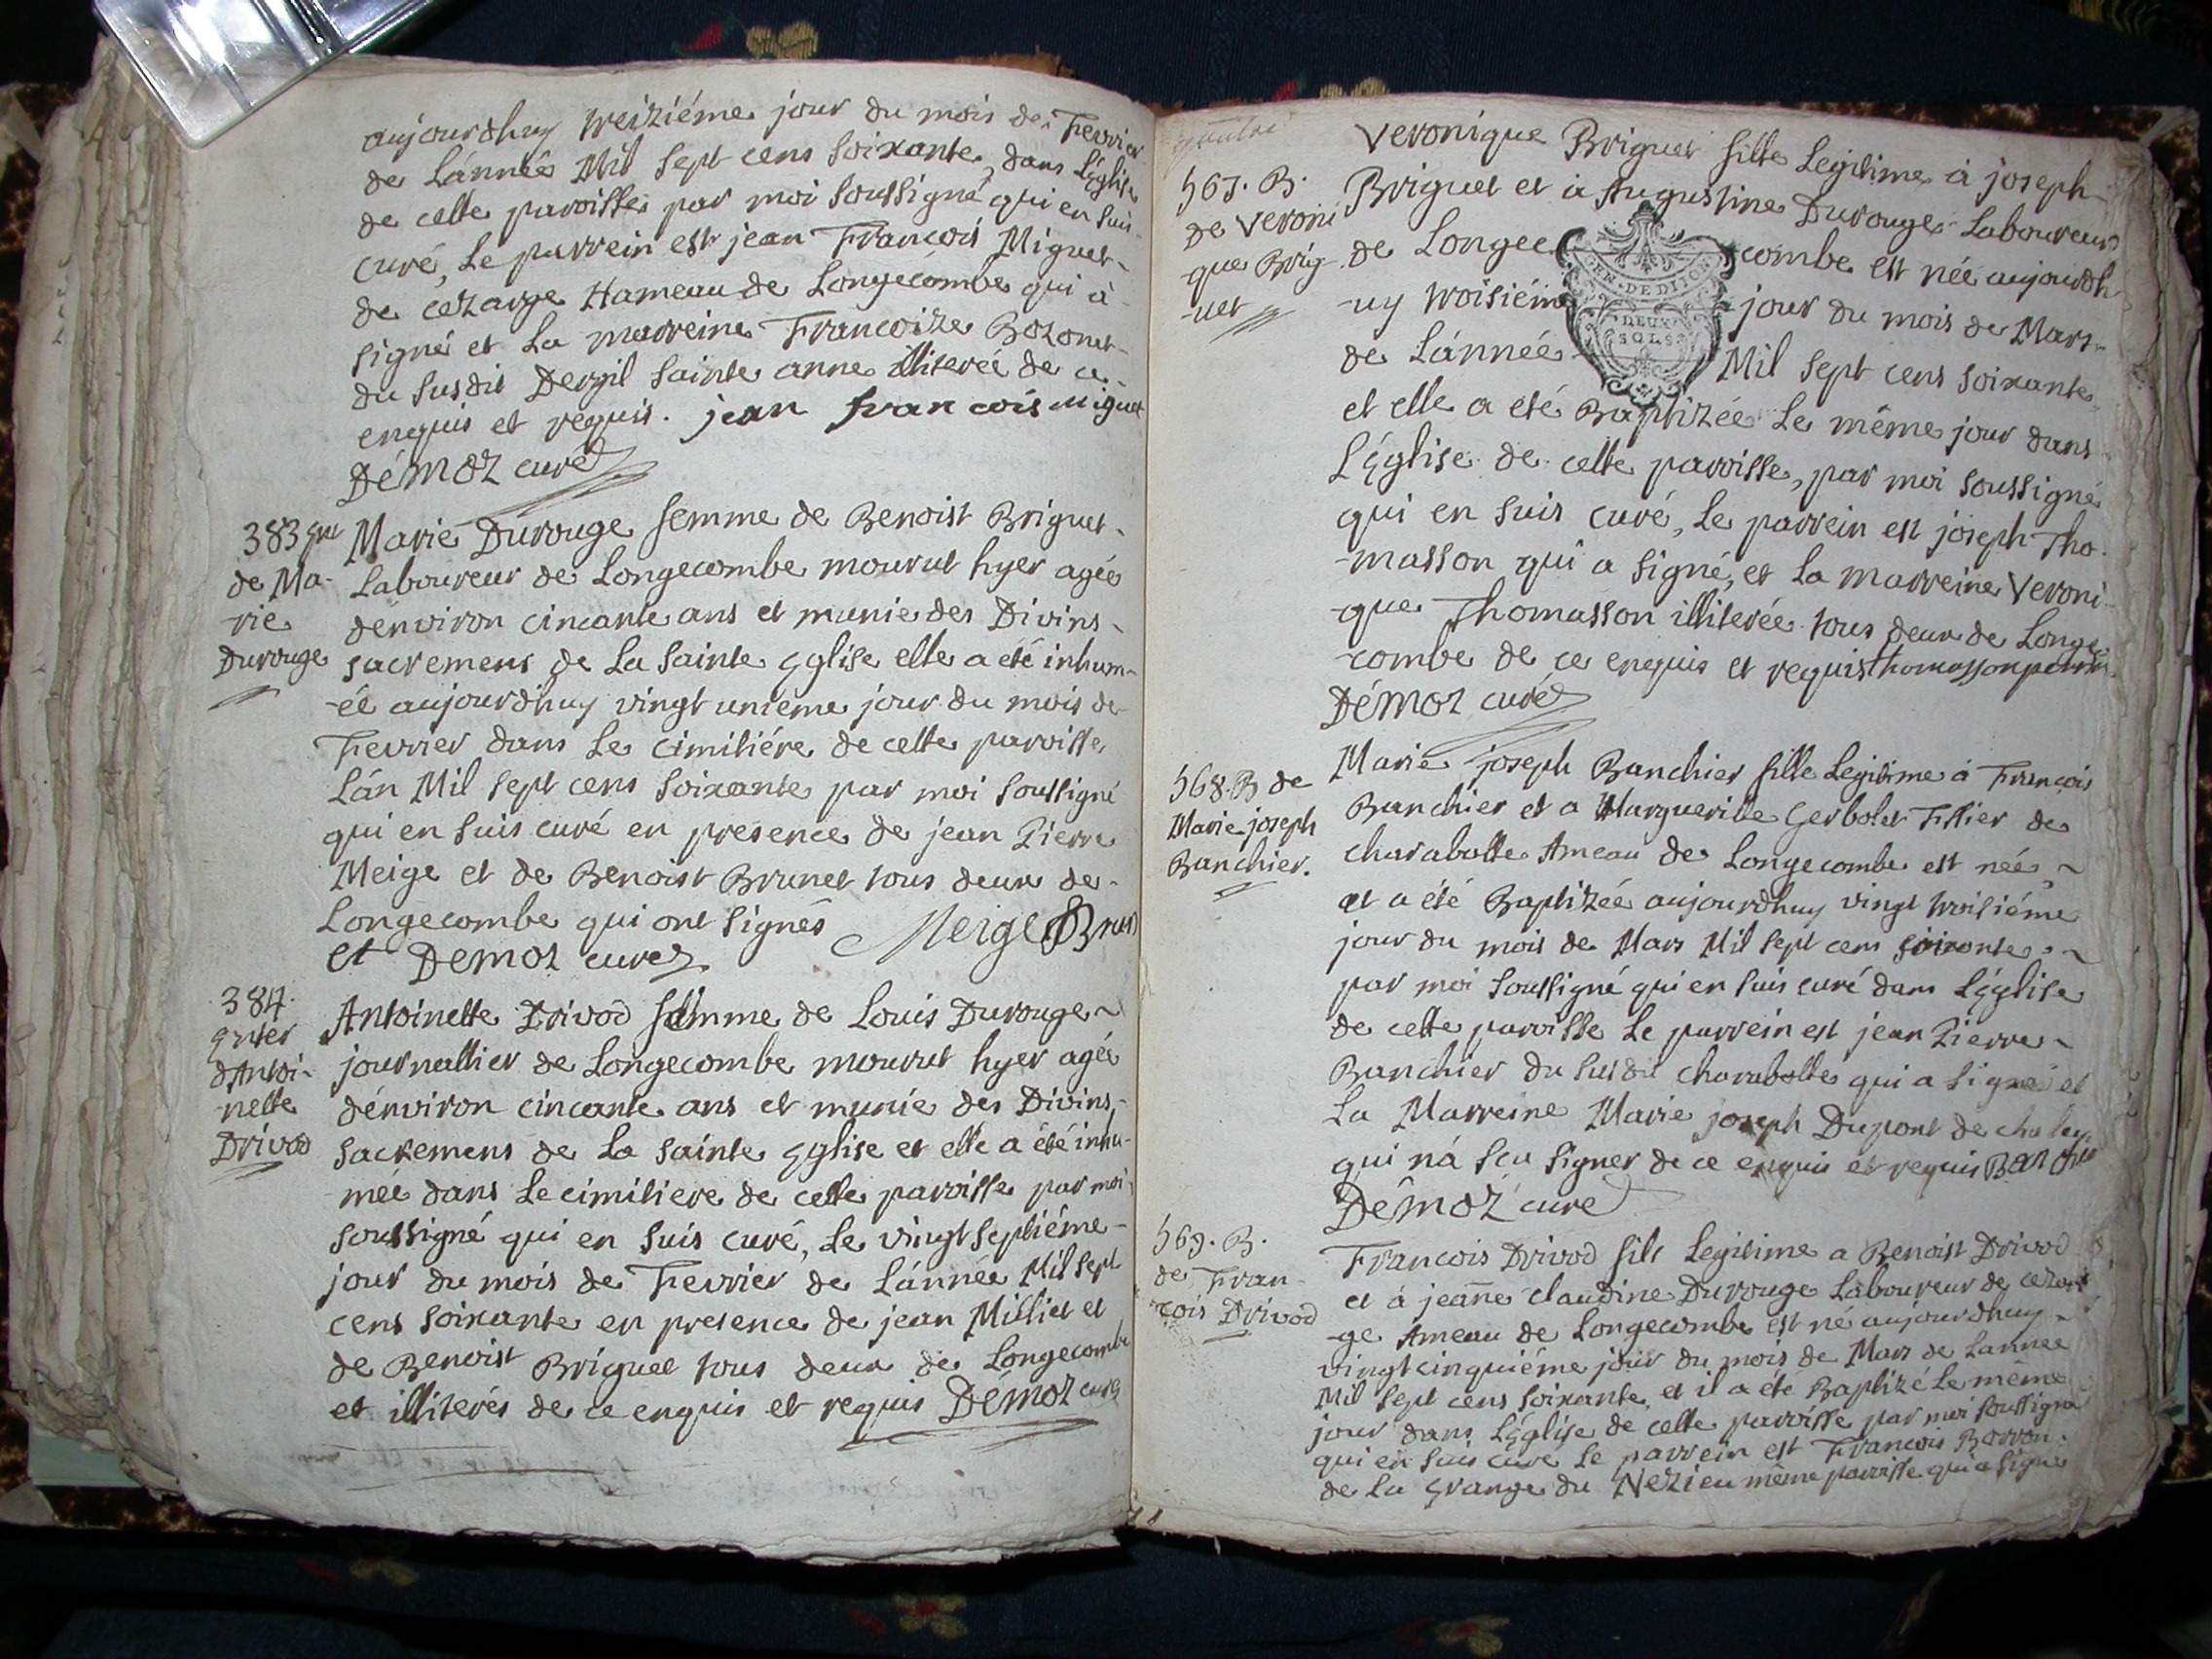 aujourdhuy treiziéme jour du mois de Fevrier
de Lánnée Mil Sept cens Soixante, dans LEglise
de cette paroisse par moi Soussigné qui en Suis
curé, Le parrein est jean François Miguet
de cezarge Hameau de Longecombe qui à
signé et La marreine Francoize Bozonet
du susdit Dergil Sainte anne illiterée de ce
enquis et requis. jean francois miguet
Démoz curé
383 
de Ma-
rie
Durouge
Marie Durouge femme de Benoist Briguet
Laboureur de Longecombe mourut hyer agée
dénviron cincante ans et munie des Divins
sacremens de La Sainte Eglise elle a été inhum-
-éé aujourdhuy vingt uniéme jour du mois de
Fevrier dans Le cimitiére de cette paroisse
Lán Mil Sept cens Soixante par moi Soussigné
qui en Suis curé en presence de jean Pierre
Meige et de Benoist Brunet tous deux de
Longecombe qui ont signés Meige
et Demoz curé
384
Enter
dAntoi-
nette
Drivod
Antoinette Drivod femme de Louis Durouge
journallier de Longecombe mourut hyer agée
dénviron cincante ans et munie des Divins
sacremens de La Sainte Eglise et elle a été inhu-
mée dans Le cimitiere de cette paroisse par moi
soussigné qui en Suis curé, Le vingt Septiéme
jour du mois de Fevrier de Lánnée Mil Sept
cens soixante en presence de jean Milliet et
de Benoist Briguet tous deux de Longecombe
et illiterés de ce enquis et requis Démoz curé
567. B.
de Veroni
que Brig
-uet
Veronique Briguet fille Legitime à joseph
Briguet et à Augustine Durouge Laboureur
de Longe combe est née aujourdh
GEN. DE DIJON
DEUX
SOLS
-uy troisiéme jour du mois de Mars
de Lánnée Mil Sept cens soixante
et elle a eté Baptizée Le même jour dans
LEglise de cette paroisse, par moi soussigné
qui en Suis curé, Le parrein est joseph Tho-
-masson qui a signé, et La marreine Veroni-
que Thomasson illiterée tous deux de Longe
-combe de ce enquis et requis thomasson parrin
Démoz curé
568. B de
Marie joseph
Banchier.
Marie joseph Banchier fille Legitime à François
Banchier et a Marguerite Gerbolet Fittier de
charabotte Ameau de Longecombe est née
et a été Baptizée aujourdhuy vingt troisiéme
jour du mois de Mars Mil Sept cens soixante
par moi Soussigné qui en Suis curé dans LEglise
de cette paroisse Le parrein est jean Pierre
Banchier du Susdit charabotte qui a signé et
La Marreine Marie joseph Dupont de chaley
qui ná sçu signer de ce enquis et requis
Démoz curé
569. B.
de Fran-
cois Drivod
Francois Drivod fils Legitime a Benoist Drivod
et à jeanne claudine Durouge Laboureur de cezar
-ge Ameau de Longecombe est né aujourdhuy
vingt cinquiéme jour du mois de Mars de Lannee
Mil Sept cens soixante, et il a été Baptizé Le même
jour dans LEglise de cette paroisse par moi soussigné
qui en Suis curé Le parrein est Francois Borron
de La grange du Nezieu même paroisse qui a signé